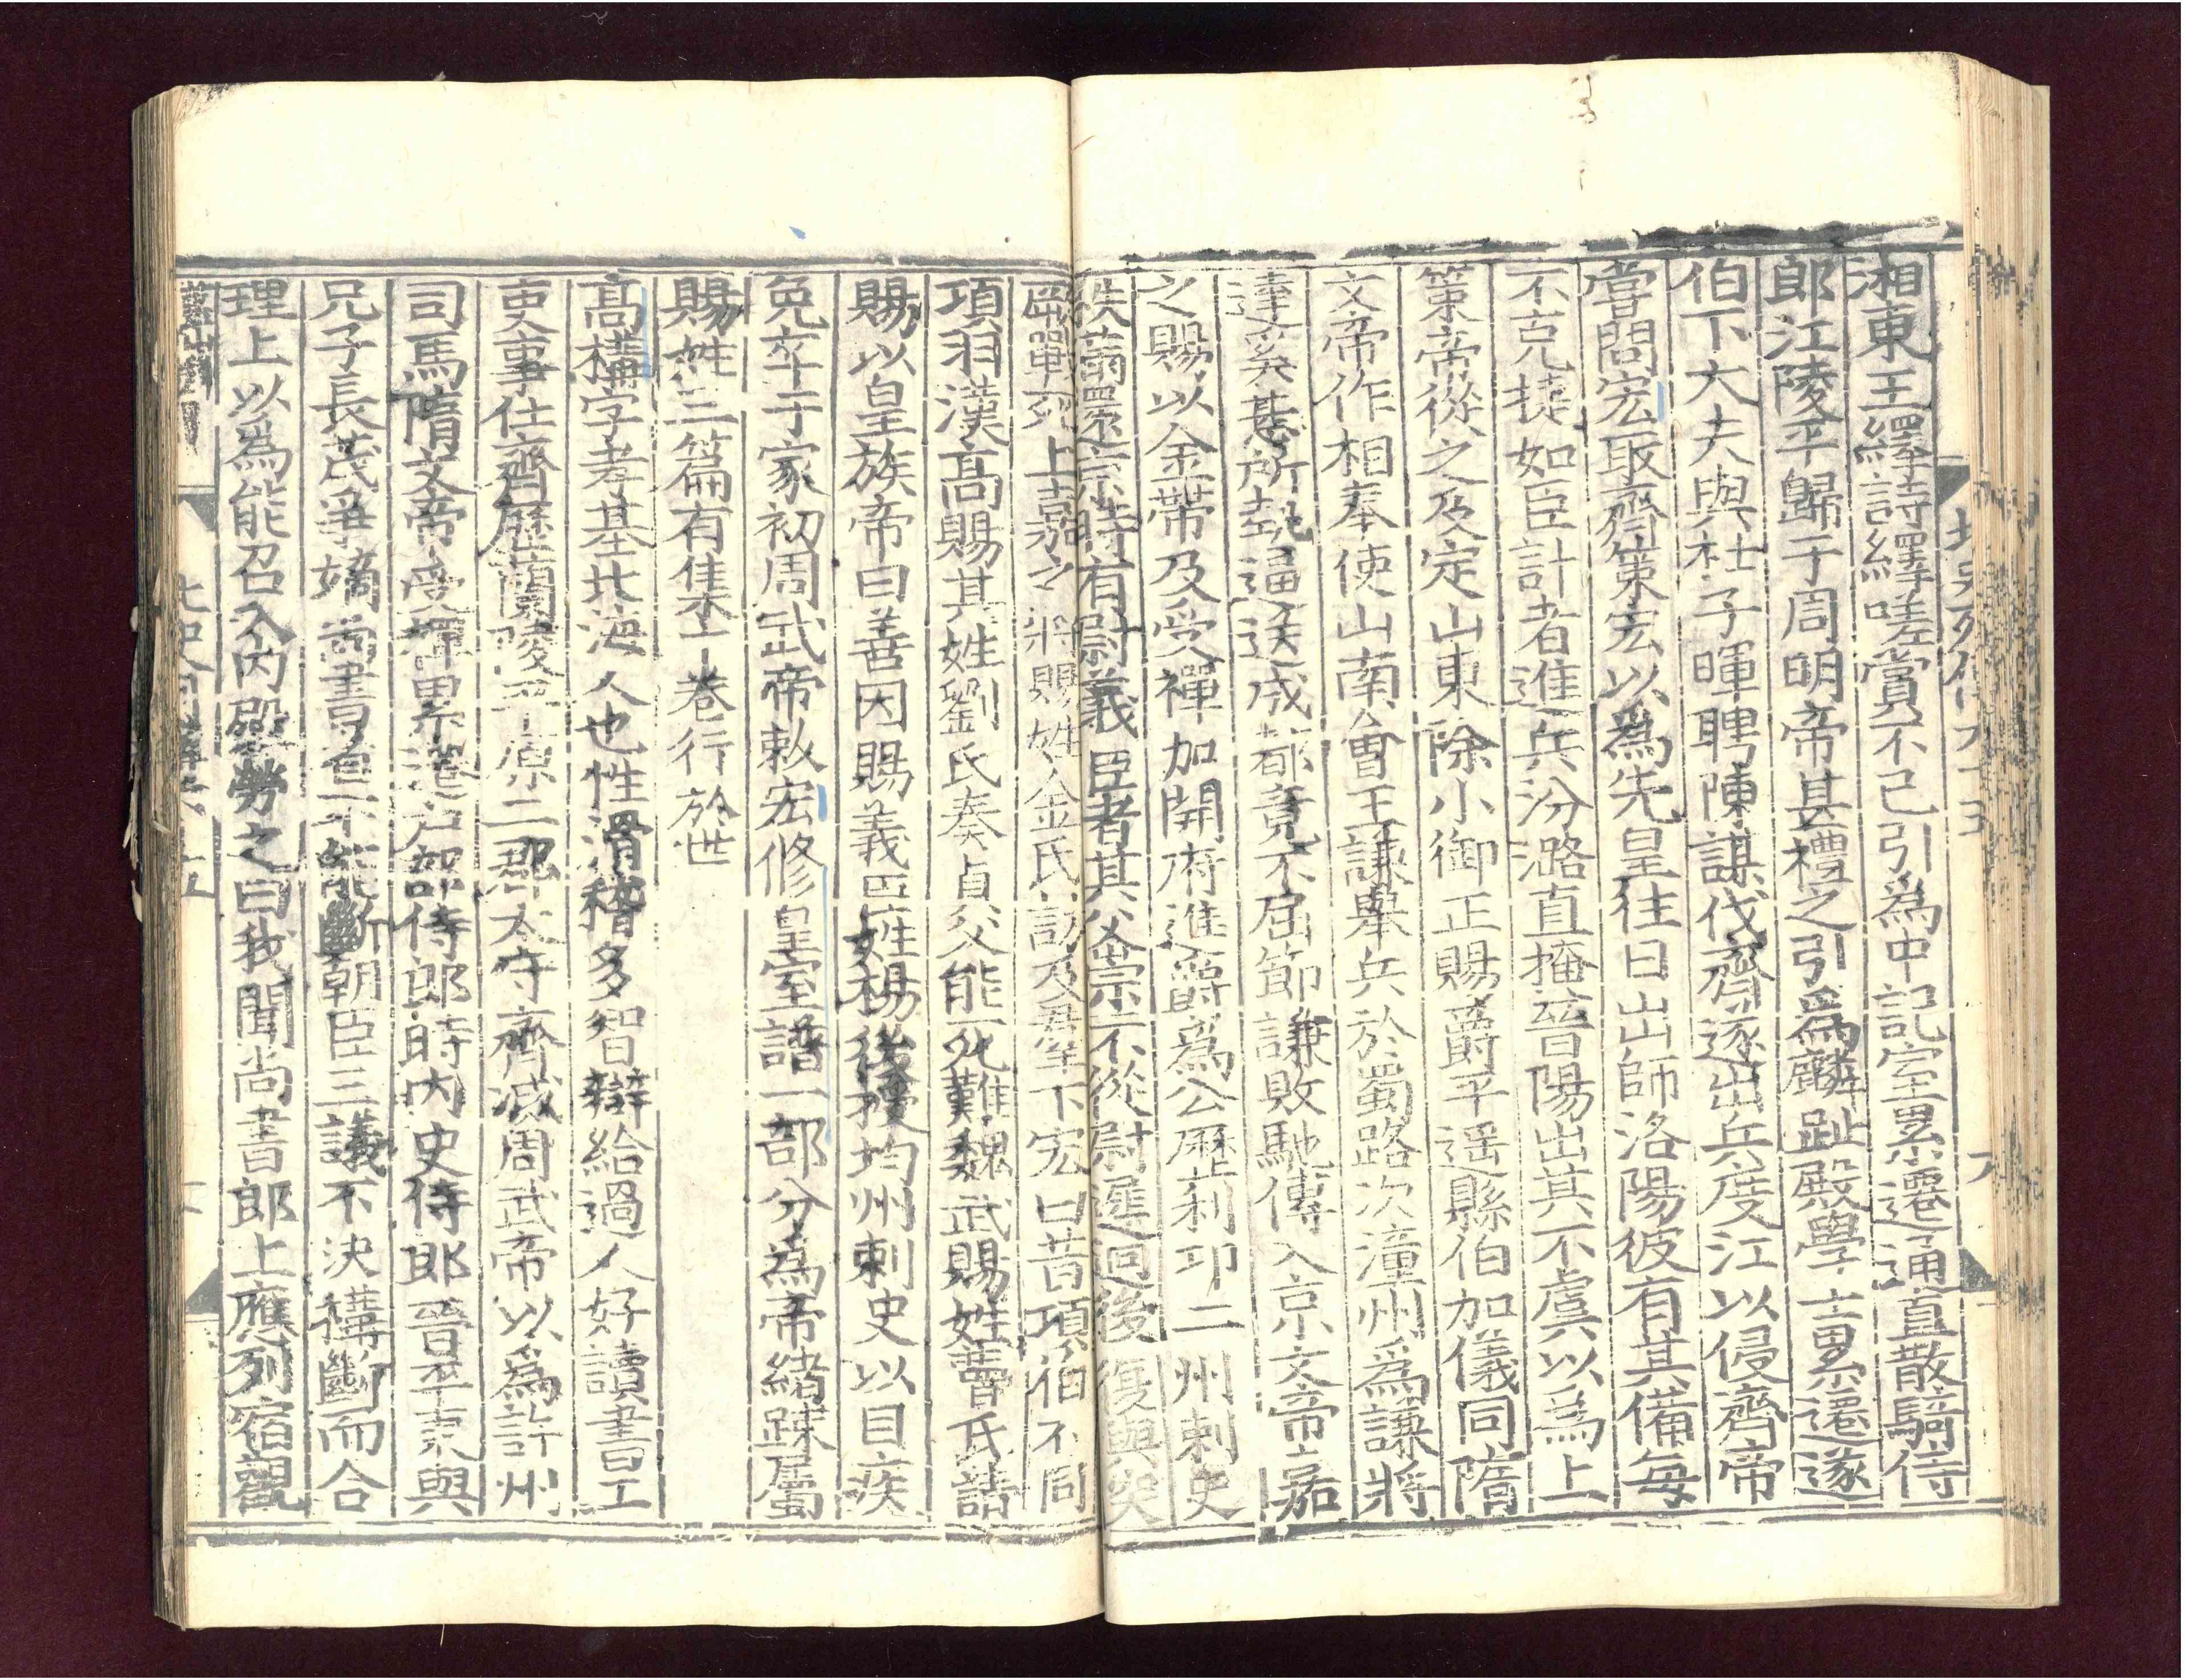 湘東王繹詩繹嗟賞不已引爲中記室累遷通直散騎侍
郎江陵平歸于周明帝甚禮之引爲麟趾殿學士累遷遂
伯下大夫與杜子暉聘陳謀伐齊遂出兵度江以侵齊帝
嘗問宏取齊策宏以爲先皇往日出師洛陽彼有其備每
不克捷如臣計者進兵汾潞直掩晉陽出其不虞以爲上
策帝從之及定山東除小御正賜爵平遥縣伯加儀同隋
文帝作相奉使山南會王謙舉兵於蜀路次潼州爲謙將
達奚惎所執逼送成都竟不屈節謙敗馳傳入京文帝嘉
之賜以金帶及受禪加開府進爵爲公歷利邛二州刺史
秩滿還京時有尉義臣者其父崇不從尉遲迥後復與突
厥戰死上嘉之將賜姓金氏訪及羣下宏曰昔項伯不同
項羽漢高賜其姓劉氏奏貞父能死難魏武賜姓曹氏請
賜以皇族帝曰善因賜義臣姓楊後授均州刺史以目疾
免卒于家初周武帝敕宏修皇室譜一部分爲帝緒踈屬
賜姓三篇有集十卷行於世
高構字孝基北海人也性滑稽多智辯給過人好讀書工
吏事仕齊歷蘭陵平原二郡太守齊滅周武帝以爲許州
司馬隋文帝受禪累遷户部侍郎時内史侍郎晉平東與
兄子長茂爭嫡尚書省不能斷朝臣三議不決構斷而合
理上以爲能召入内殿勞之曰我聞尚書郎上應列宿觀